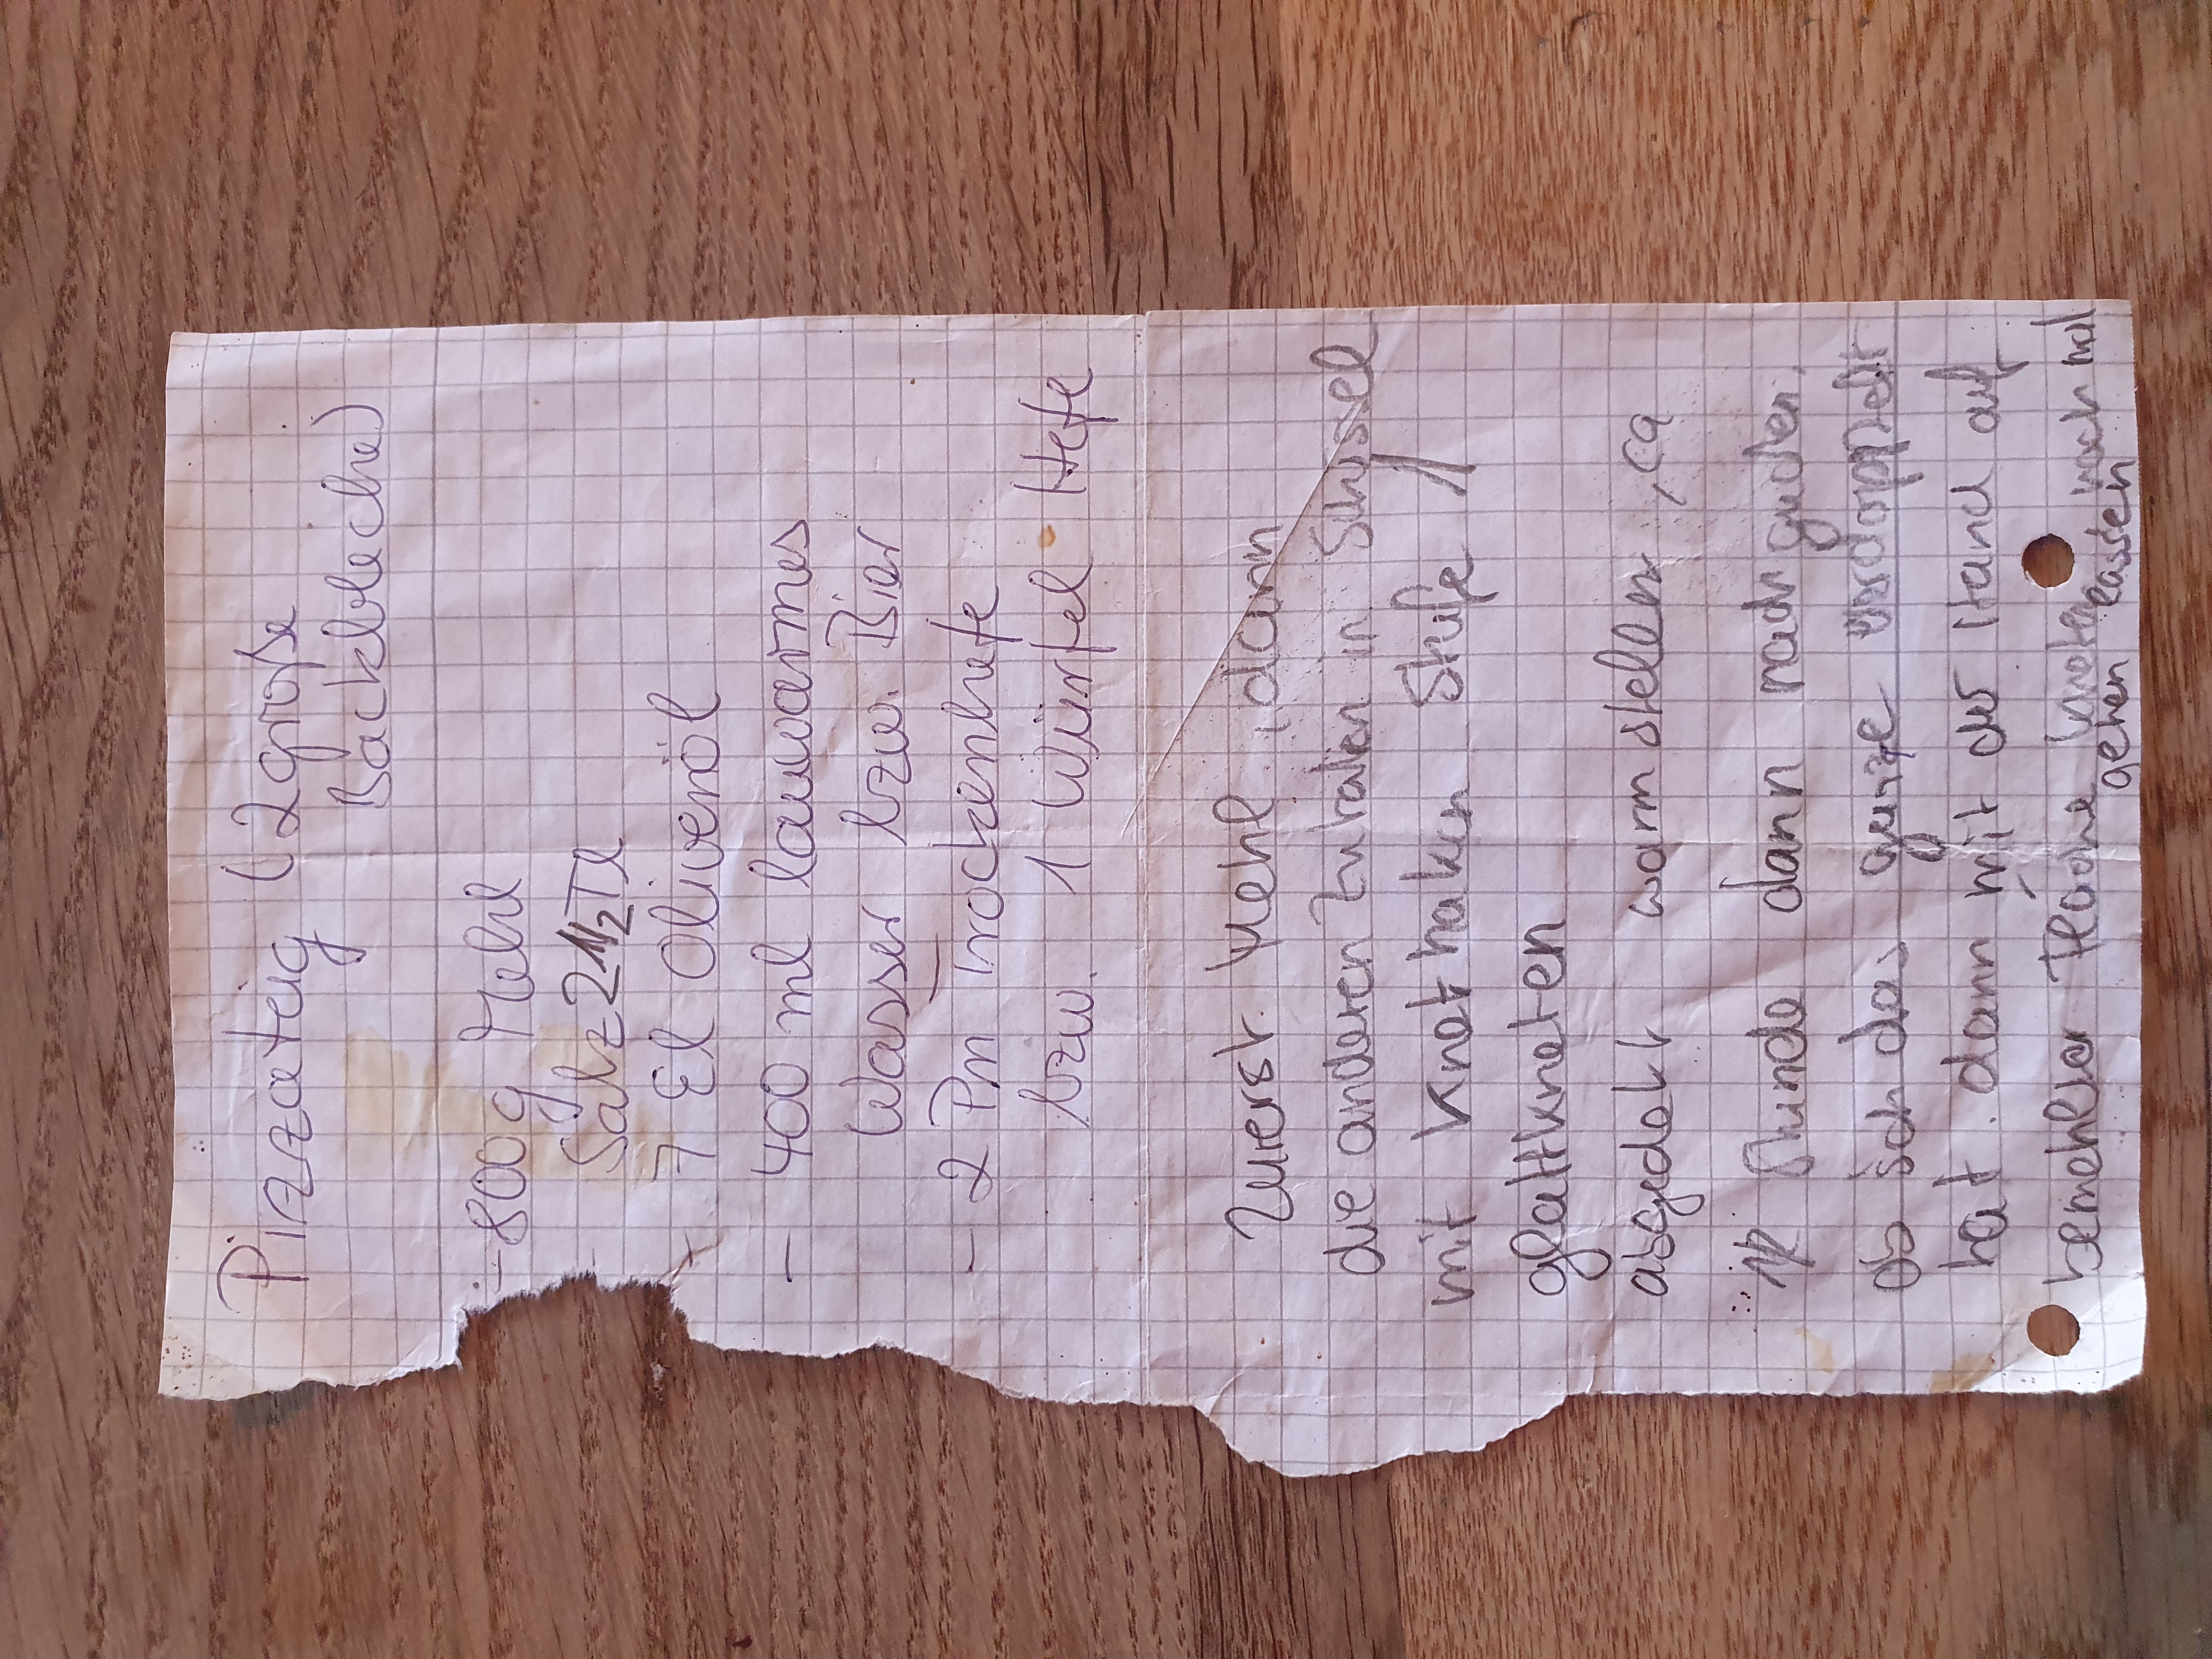 Pizzateig (2 große
Backbleche)
- 800g Mehl
Salz 2 1/2 Tl
- 7 El Olivenöl
- 400 ml lauwarmes
Wasser bzw. Bier
- 2 Pn Trockenhefe
bzw. 1 Würfel Hefe
Zuerst Mehl, dann
die anderen Zutaten in Schüssel
mit Knethaken Stufe 1
glattkneten
abgedekt warm stellen, ca
Stunde dann nachgucken,
ob sich das ganze verdoppelt
hat. dann mit der Hand auf
bemehlter Fläche kneten noch mal
gehen lassen